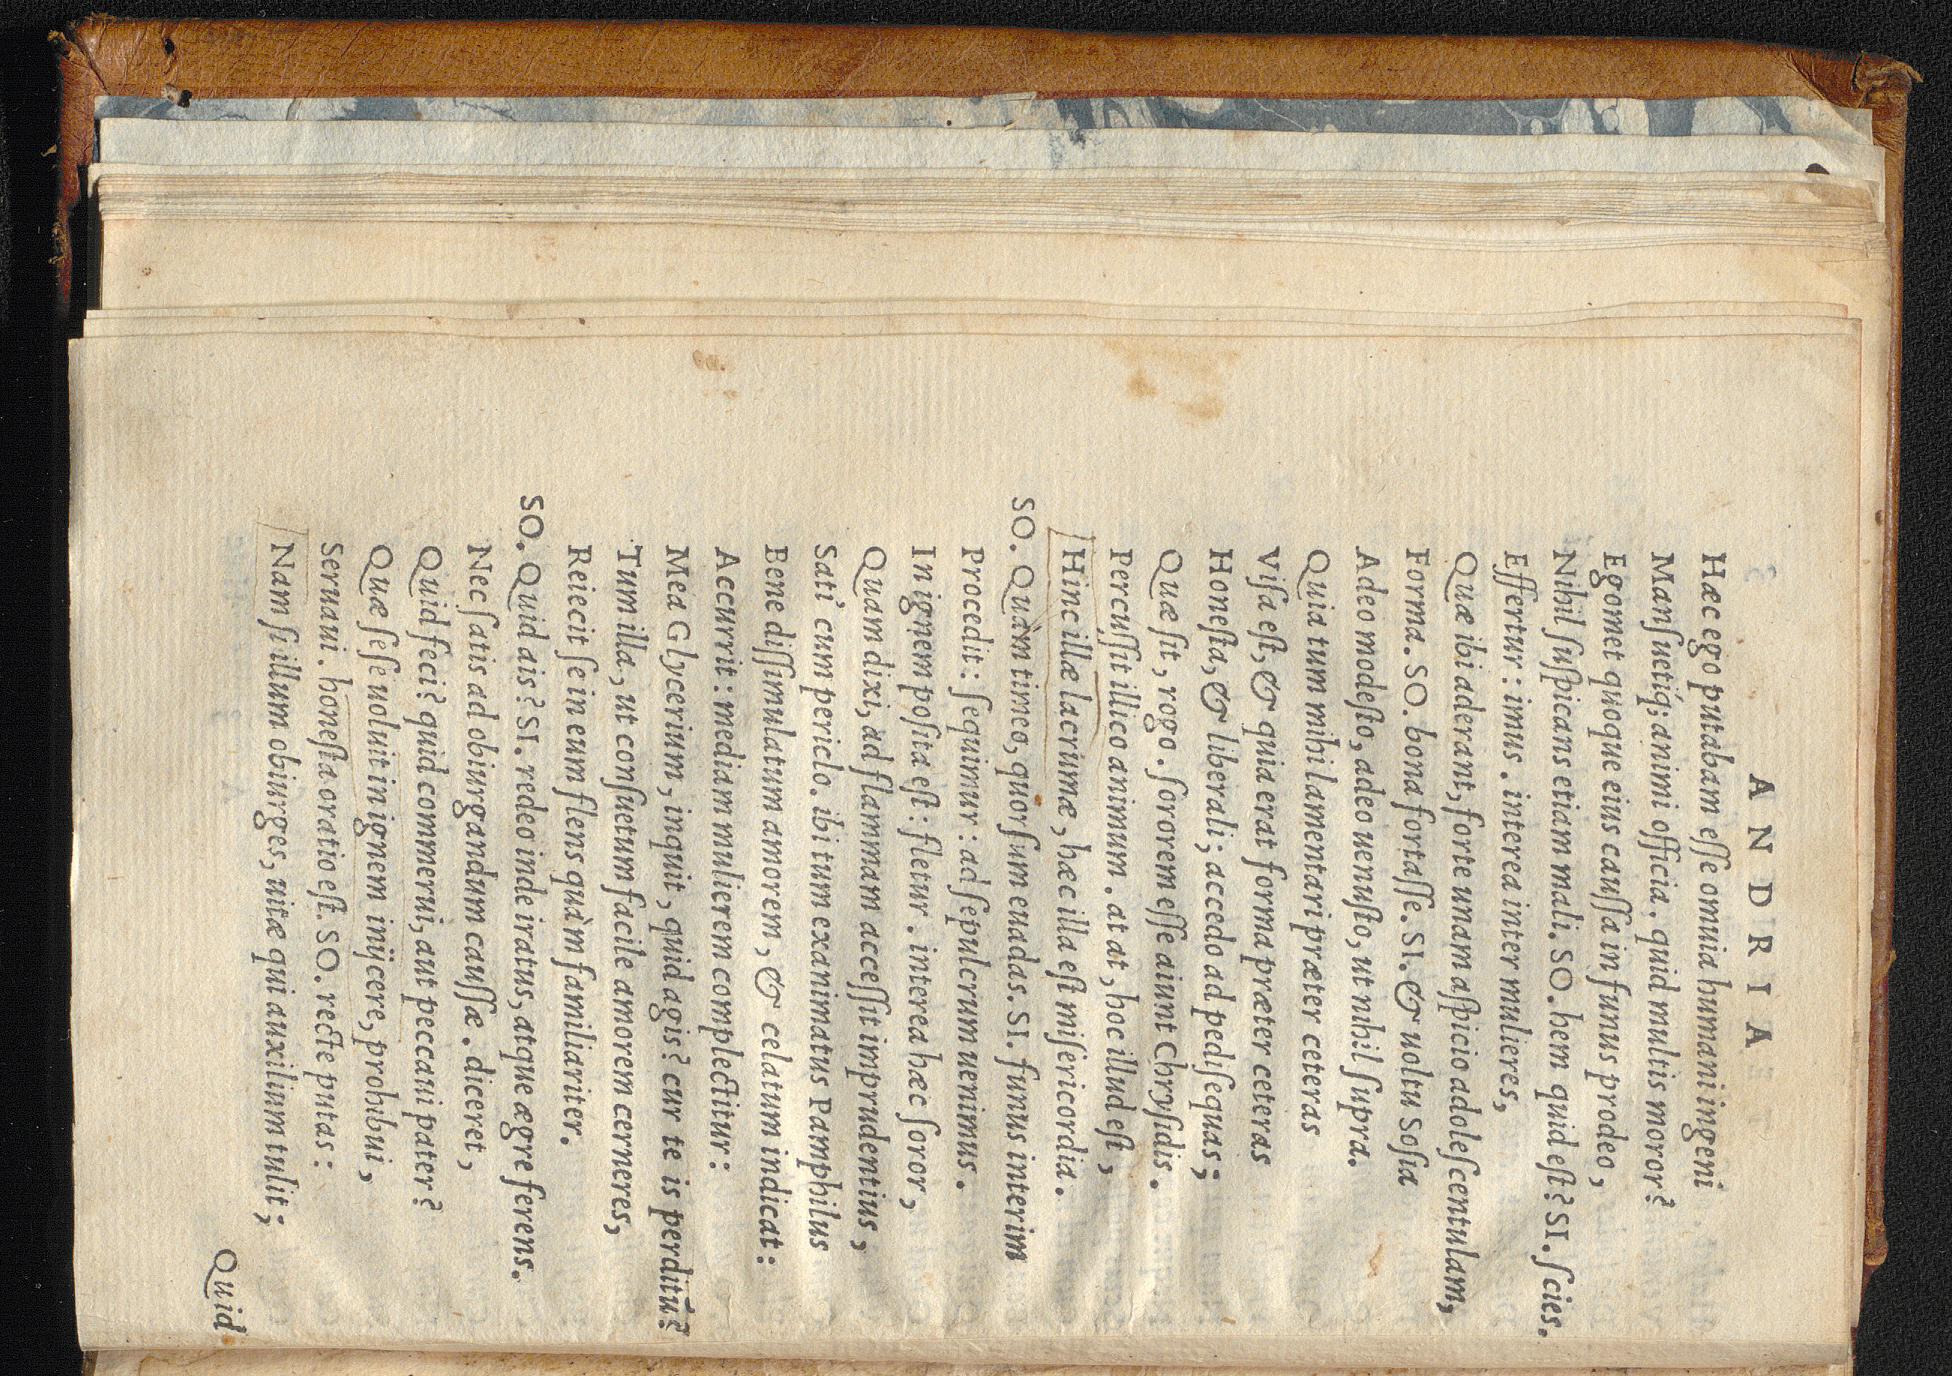 ANDRIA
Hæc ego putabam eſſe omuia humani ingeni
Manſuetiq́; animi officia. quid multis moror?
Egomet quoque eius cauſſa in funus prodeo,
Nihil ſuſpicans etiam mali. SO. hem quid eſt? SI. ſcies.
Effertur: imus. interea inter mulieres,
Quæ ibi aderant, forte unam aſpicio adoleſcentulam,
Forma. SO. bona fortaſſe. SI. & uoltu Soſia
Adeo modeſto, adeo uenuſto, ut nihil ſupra.
Quia tum mihi lamentari præter ceteras
Viſa eſt, & quia erat forma præter ceteras
Honeſta, & liberali; accedo ad pediſequas;
Quæ ſit, rogo. ſororem eſſe aiunt Chryſidis.
Percuſſit illico animum. at at, hoc illud eſt,
Hinc illæ lacrumæ, hæc illa eſt miſericordia.
SO. Quàm timeo, quorſum euadas. SI. funus interim
Procedit: ſequimur: ad ſepulcrum uenimus.
In ignem poſita eſt: fletur. interea hæc ſoror,
Quam dixi, ad flammam acceſſit imprudentius,
Sati' cum periclo. ibi tum exanimatus Pamphilus
Bene diſſimulatum amorem, & celatum indicat:
Accurrit: mediam mulierem complectitur:
Mea Glycerium, inquit, quid agis? cur te is perditū?
Tum illa, ut conſuetum facile amorem cerneres,
Reiecit ſe in eum flens quàm familiariter.
SO. Quid ais? SI. redeo inde iratus, atque ægre ferens.
Nec ſatis ad obiurgandum cauſſæ. diceret,
Quid feci? quid commerui, aut peccaui pater?
Quæ ſeſe uoluit in ignem inijcere, probibui,
Seruaui. honeſta oratio eſt. SO. recte putas:
Nam ſi illum obiurges, uitæ qui auxilium tulit;
Quid